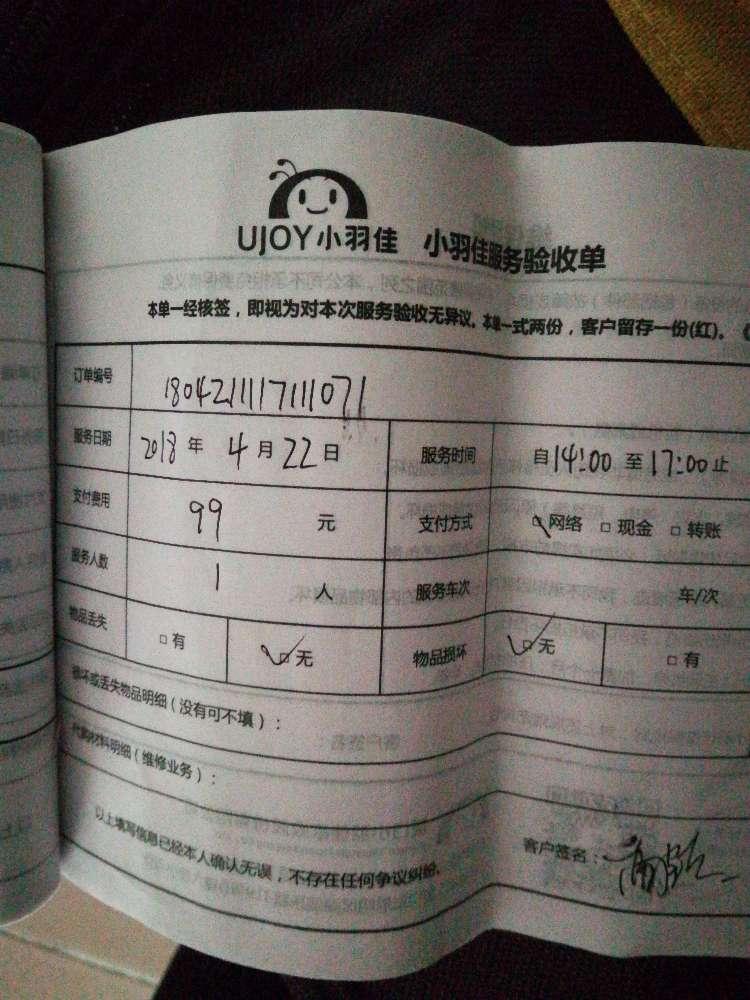 UJOY小羽佳 小羽佳服务验收单
本单一经核签，即视为对本次服务验收无异议。本单一式两份，客户留存一份(红)。
订单编号 180421111711071
服务日期 2018 年 4 月 22 日 服务时间 自 14:00 至 17:00 止
支付费用 99 元 支付方式 □ 网络 □ 现金 □ 转账
服务人数 1 人 服务车次 车/次
物品丢失 □ 有 □ 无 物品损坏 □ 无 □ 有
损坏或丢失物品明细（没有可不填）：
代购材料明细（维修业务）：
以上填写信息已经本人确认无误，不存在任何争议纠纷。
客户签名：